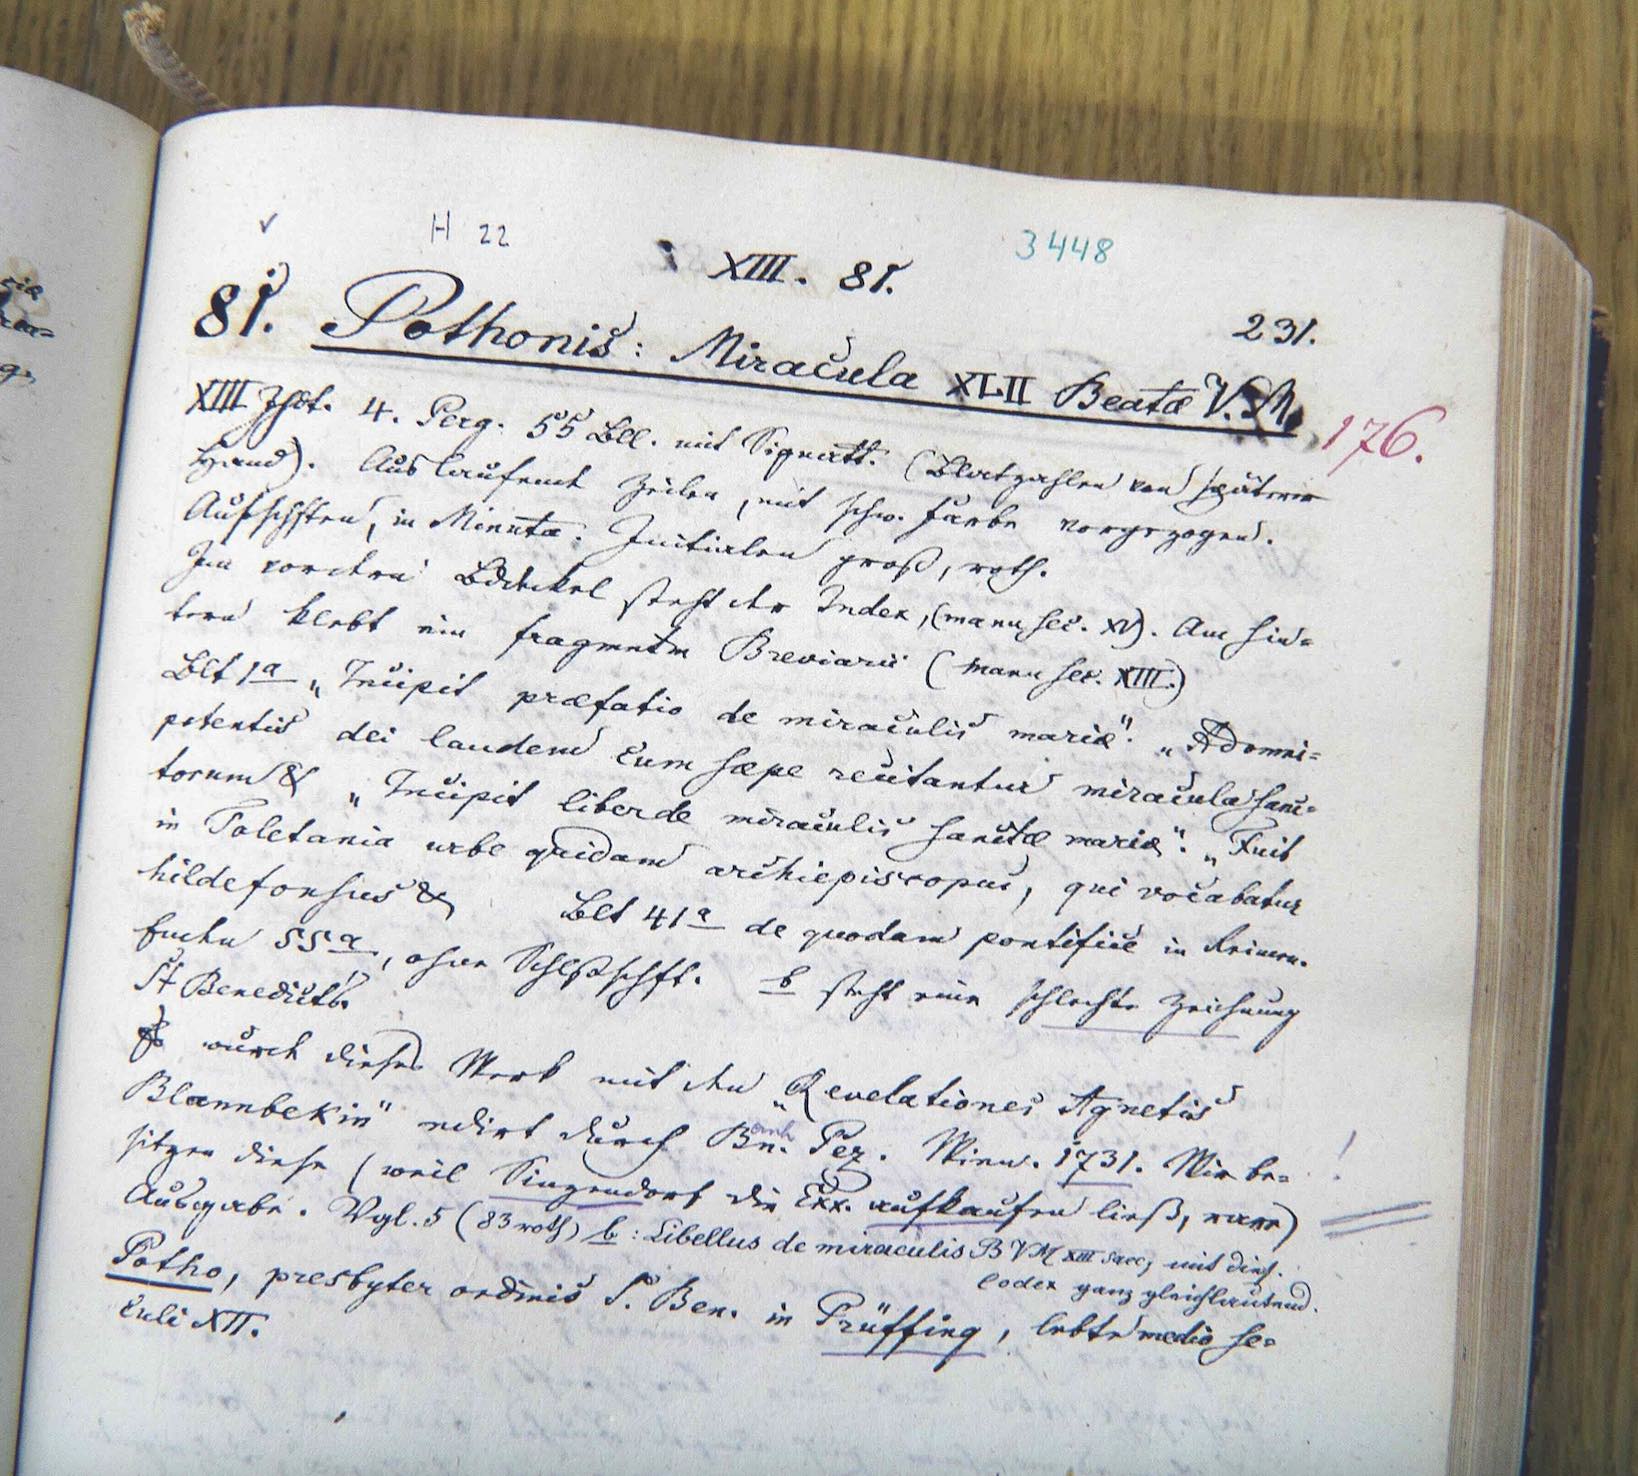 ✓ H 22 3448
XIII. 81.
231.
81. Pothonis: Miracula XLII Beatæ V. M.
176.
XIII Jhdt. 4. Perg. 55 Bll. mit Signatt. (Blatzahlen von späterer
Hand). Auslaufend Zeilen, mit schw. Farbe vorgezogen.
Aufschften, in Minutæ. Initialen groß, roth.
Im vordern Bdeckel steht der Index, (manu sec. XV). Am hin=
tern klebt ein fragmentm Breviarii (manu sec. XIII.)
Blt 1a „Incipit præfatio de miraculis mariæ“. „Ad omni=
potentis dei laudem cum sæpe recitantur miracula sanc=
torum & „Incipit liber de miraculis sanctæ mariæ“. „Fuit
in Toletania urbe quidam archiepiscopus, qui vocabatur
hildefonsus & Blt 41a de quodam pontifice in Reimen.
Ende 55a, ohne Schlßschft. b steht eine schlechte Zeichnung
St Benedicts.
wurde dieses Werk mit den „Revelationes Agnetis
Blannbekin“ edirt durch Bn. Pez. Wien. 1731. Wir be= !
sitzen diese (weil Sinzendorf die Exx. aufkaufen ließ, rare)
Ausgabe. Vgl. 5 (83 roth) b: Libellus de miraculis B V M XIII saec, mit dies.
Codex ganz gleichlautend.
Potho, presbyter ordinis S. Ben. in Prüffing, lebte medio se=
culi XII.